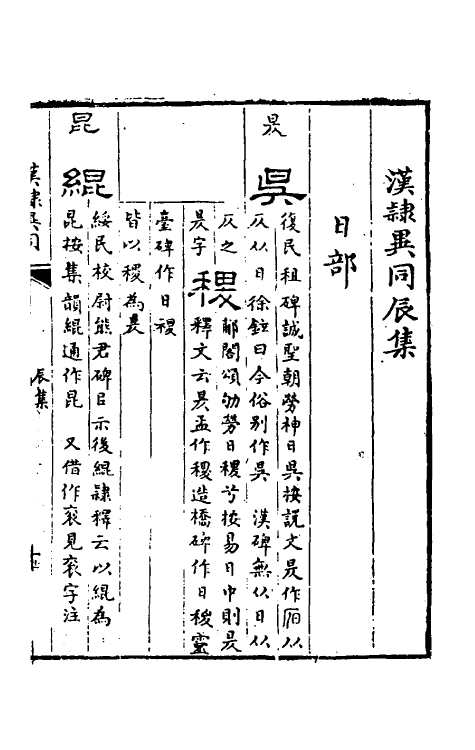 漢隸異同辰集
日部
昃
吳
復民租碑誠聖朝勞神日吳按說文昃作𠨮从
仄从日徐鉉曰今俗別作吳　漢碑無从日从
仄之
昃字
稷
郙閣頌劬勞日稷兮按易日中則昃
釋文云昃孟作稷造橋碑作日稷靈
臺碑作日稷
皆以稷為昃
昆
緄
綏民校尉熊君碑曰示後緄隸釋云以緄為
昆按集韻緄通作昆　又借作衮見衮字注
漢隸異同
辰集